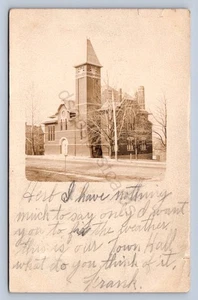 Bert I have nothing
much to say only I want
you to the weather
This is our Town Hall
what do you think of it.
Frank.